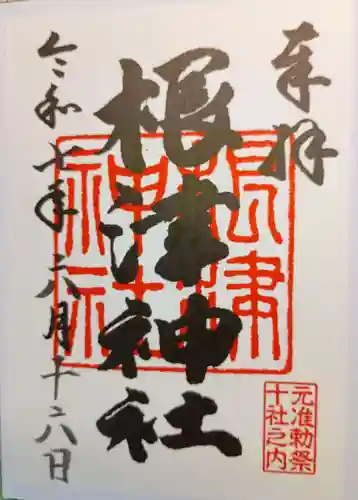 奉拝
根津神社
令和七年六月十六日
根津
神社
元准勅祭
十社之内